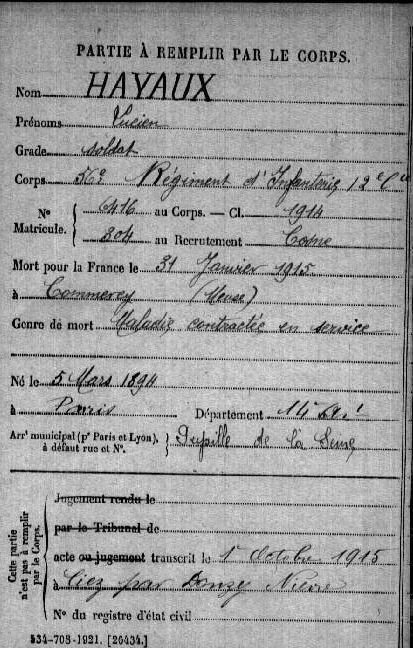 PARTIE À REMPLIR PAR LE CORPS.
Nom HAYAUX
Prénoms Lucien
Grade soldat
Corps 56e Régiment d'Infanterie 12e Cie
N° Matricule. { 6416 au Corps. — Cl. 1914
804 au Recrutement Cosne
Mort pour la France le 31 Janvier 1915
à Commercy (Meuse)
Genre de mort Maladie contractée en service
Né le 5 Mars 1894
à Paris Département 14e
Arrt municipal (pr Paris et Lyon), à défaut rue et N°. } Pupille de la Seine
Cette partie n'est pas à remplir par le Corps.
Jugement rendu le
par le Tribunal de
acte ou jugement transcrit le 1er Octobre 1915
à Ciez par Donzy Nièvre
N° du registre d'état civil
534-708-1921. [26434.]